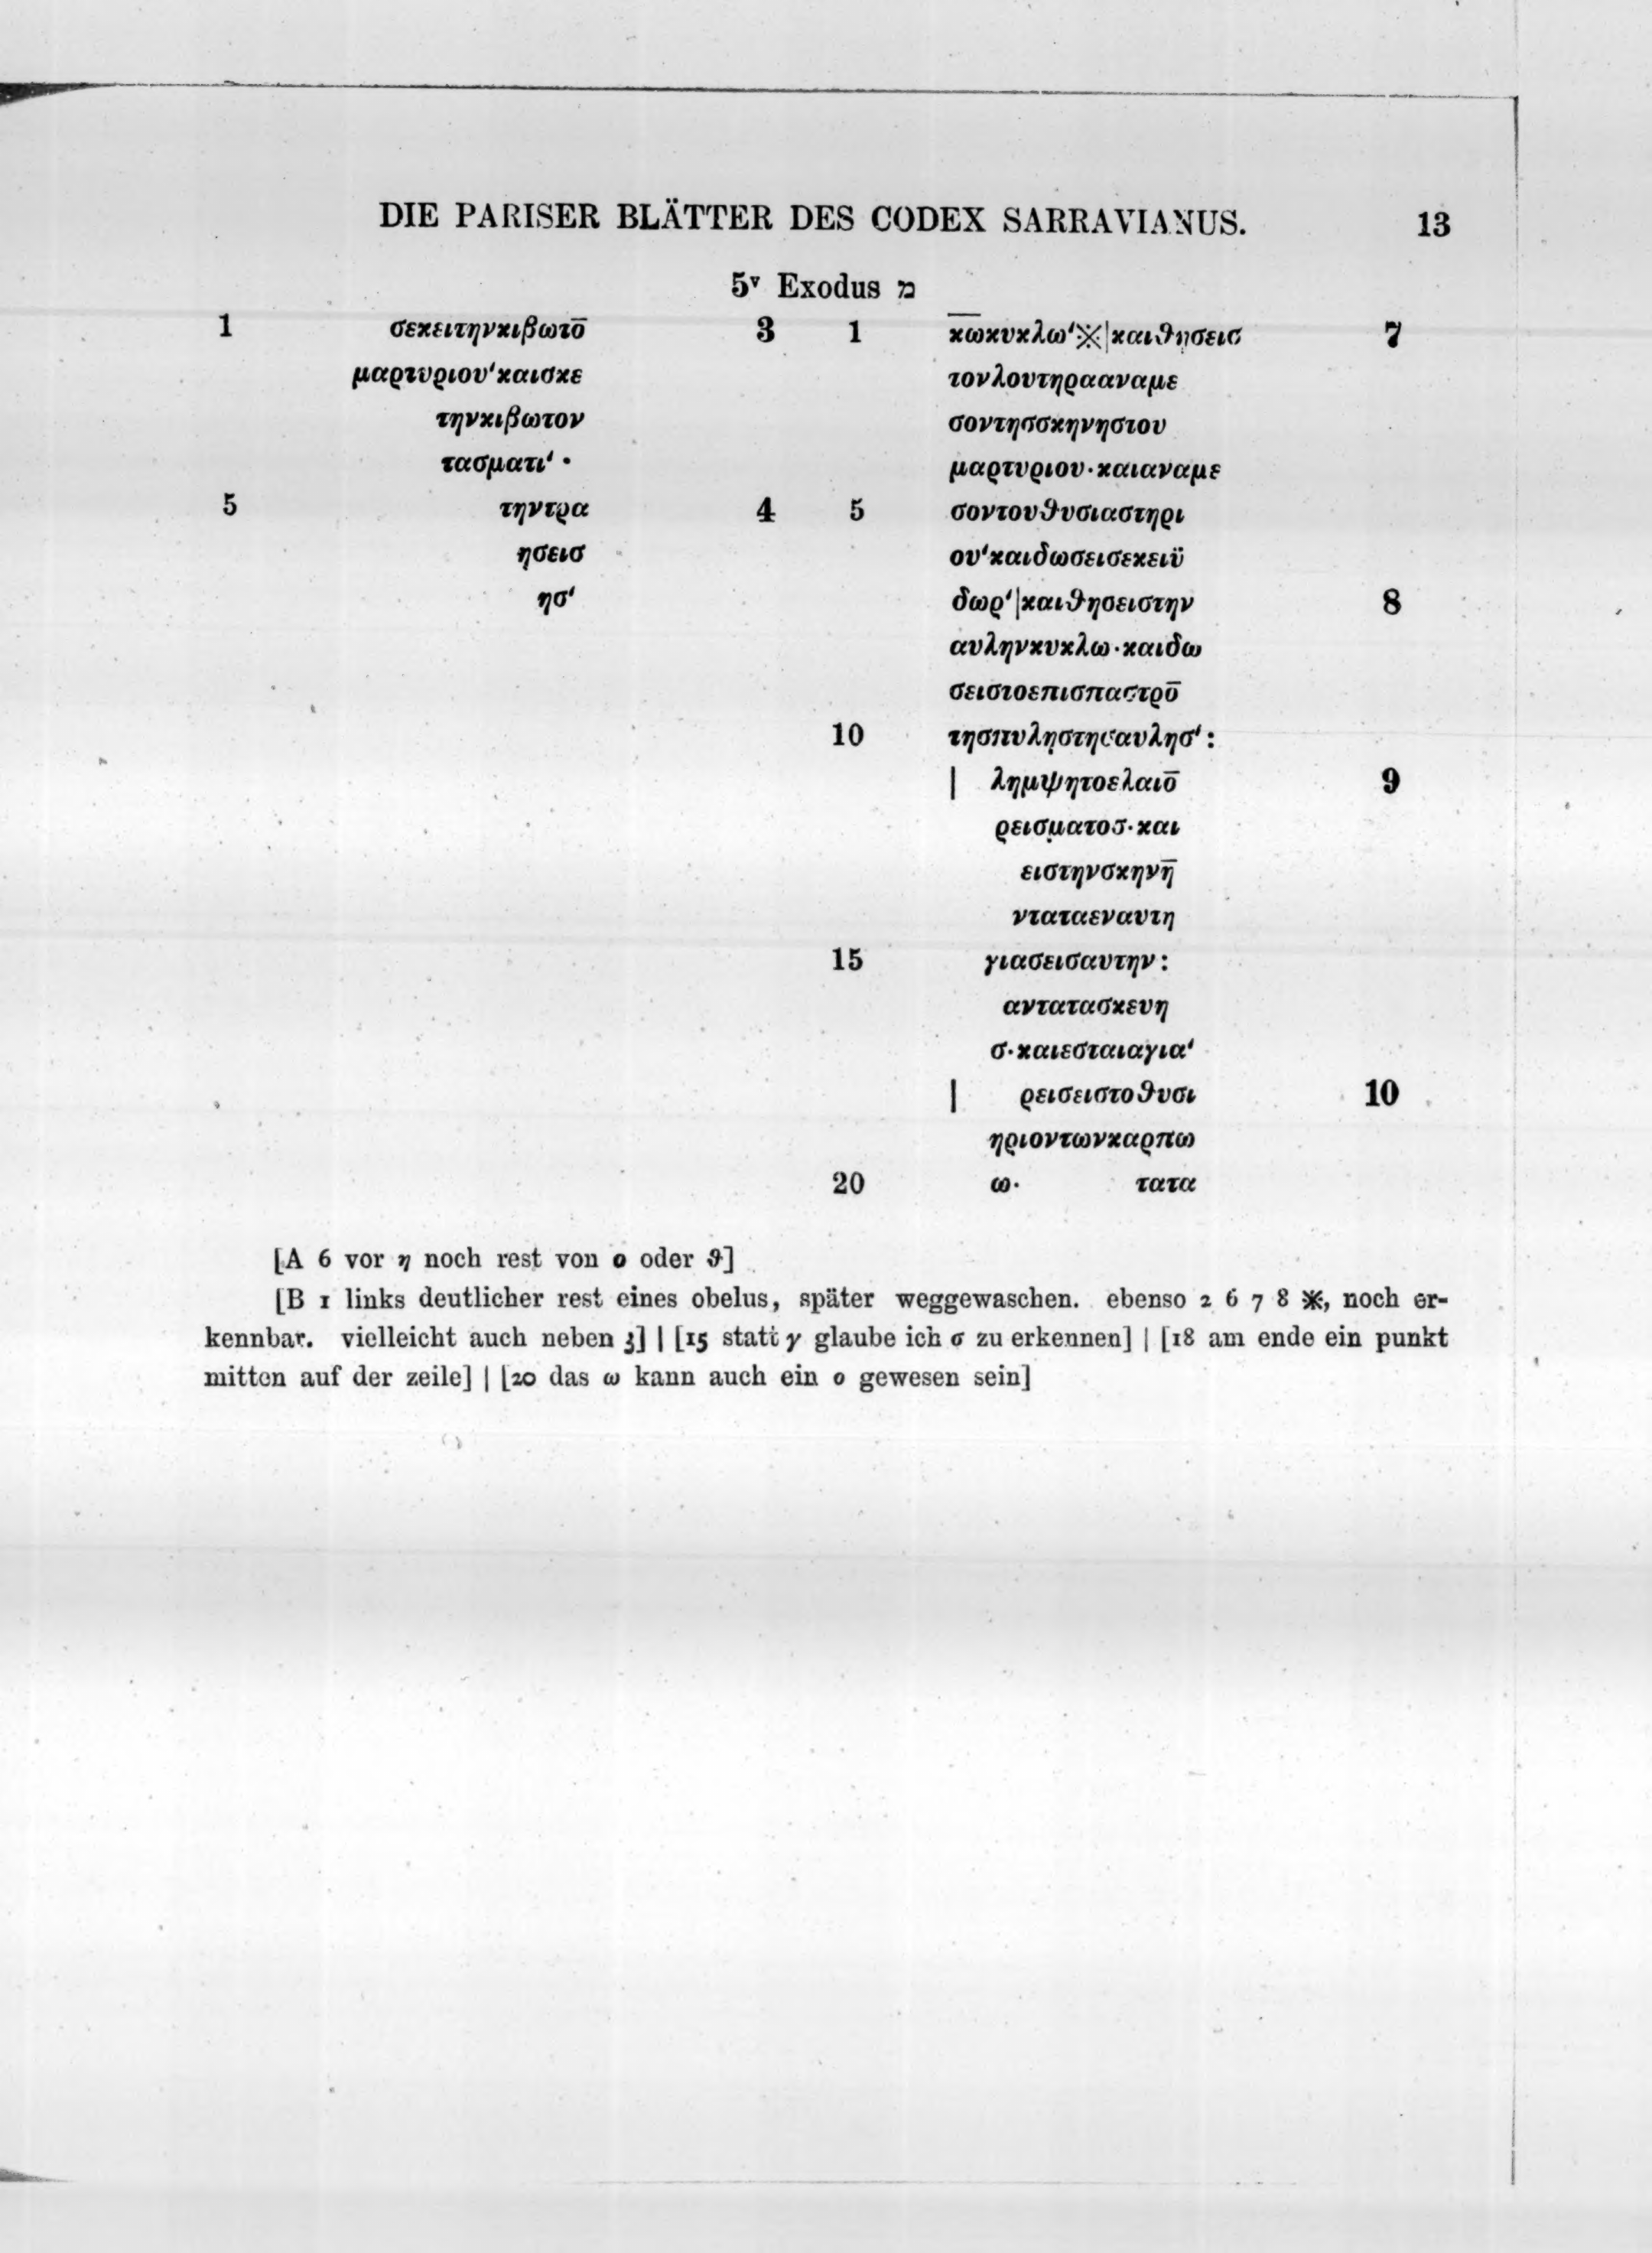 DIE PARISER BLÄTTER DES CODEX SARRAVIANUS. 13
5ᵛ Exodus מ
1 σεκειτηνκιβωτο̄ 3
μαρτυριου'καισκε
τηνκιβωτον
τασματι' ·
5 τηντρα 4
ησεισ
ησ'
1 κωκυκλω'※|καιθησεισ 7
τονλουτηρααναμε
σοντησσκηνηστου
μαρτυριου·καιαναμε
5 σοντουθυσιαστηρι
ου'καιδωσεισεκειϋ
δωρ'|καιθησειστην 8
αυληνκυκλω·καιδω
σειστοεπισπαστρο̄
10 τησπυληστησαυλησ':
| λημψητοελαιο̄ 9
ρεισματοσ·και
ειστηνσκηνη̄
νταταεναυτη
15 γιασεισαυτην:
αντατασκευη
σ·καιεσταιαγια'
| ρεισειστοθυσι 10
ηριοντωνκαρπω
20 ω· τατα
[A 6 vor η noch rest von ο oder ϑ]
[B 1 links deutlicher rest eines obelus, später weggewaschen. ebenso 2 6 7 8 ※, noch er-
kennbar. vielleicht auch neben 3] | [15 statt γ glaube ich σ zu erkennen] | [18 am ende ein punkt
mitten auf der zeile] | [20 das ω kann auch ein ο gewesen sein]